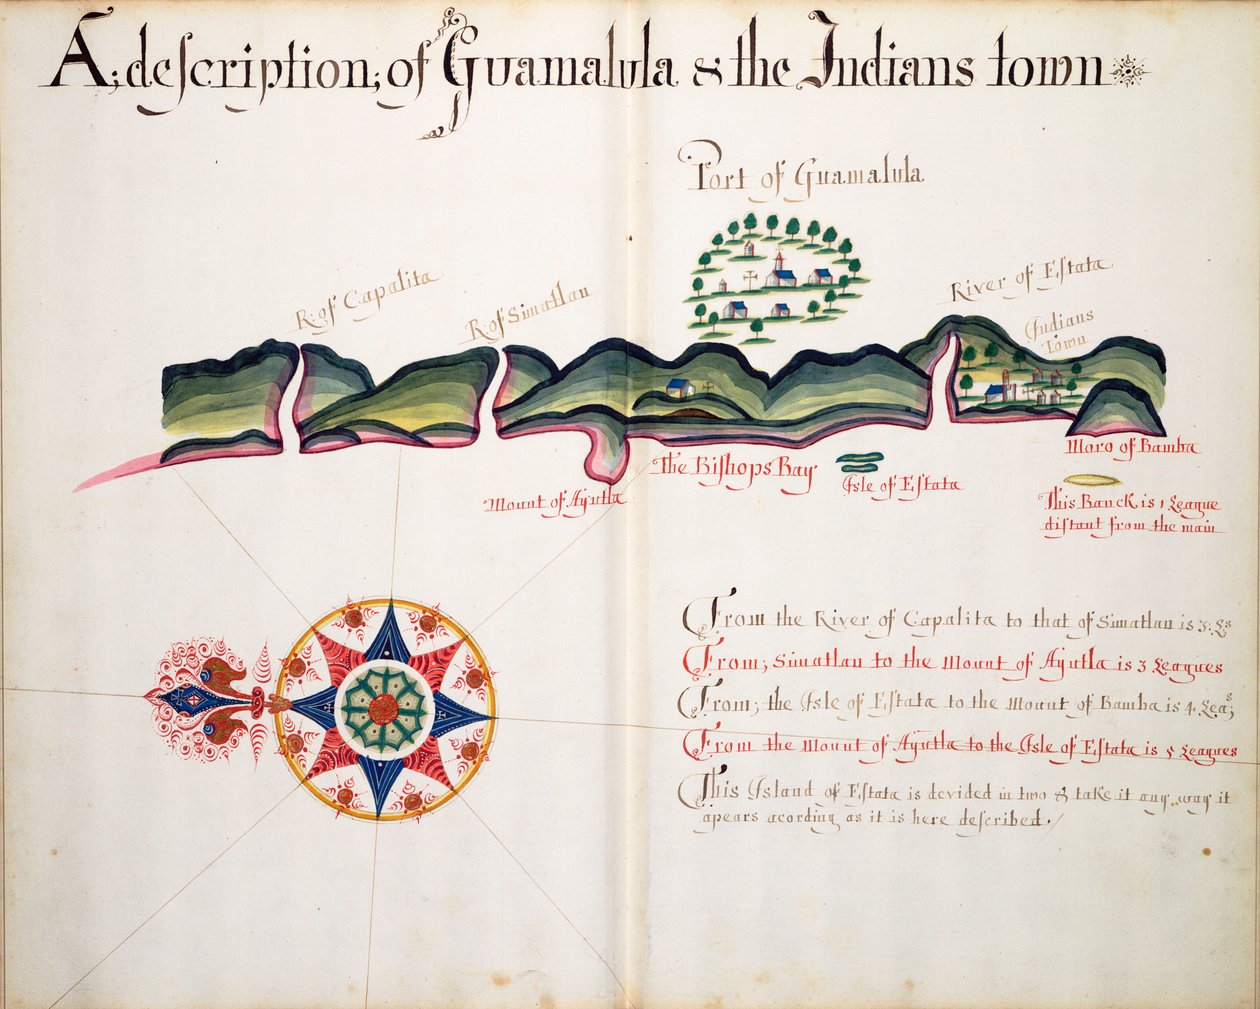 A; description; of Guamalula & the Indians town
Port of Guamalula
R: of Capalita
R: of Simatlan
River of Estata
Indians
Town
Mount of Ayutla
The Bishops Bay
Isle of Estata
Moro of Bamba
This Banck is 1 League
distant from the main
From the River of Capalita to that of Simatlan is 3: Ls
From; Simatlan to the Mount of Ayutla is 3 Leagues
From; the Isle of Estata to the Mount of Bamba is 4 Leas;
From the Mount of Ayutla to the Isle of Estata is 5 Leagues
This Island of Estata is devided in two & take it any way it
apears acording as it is here described./